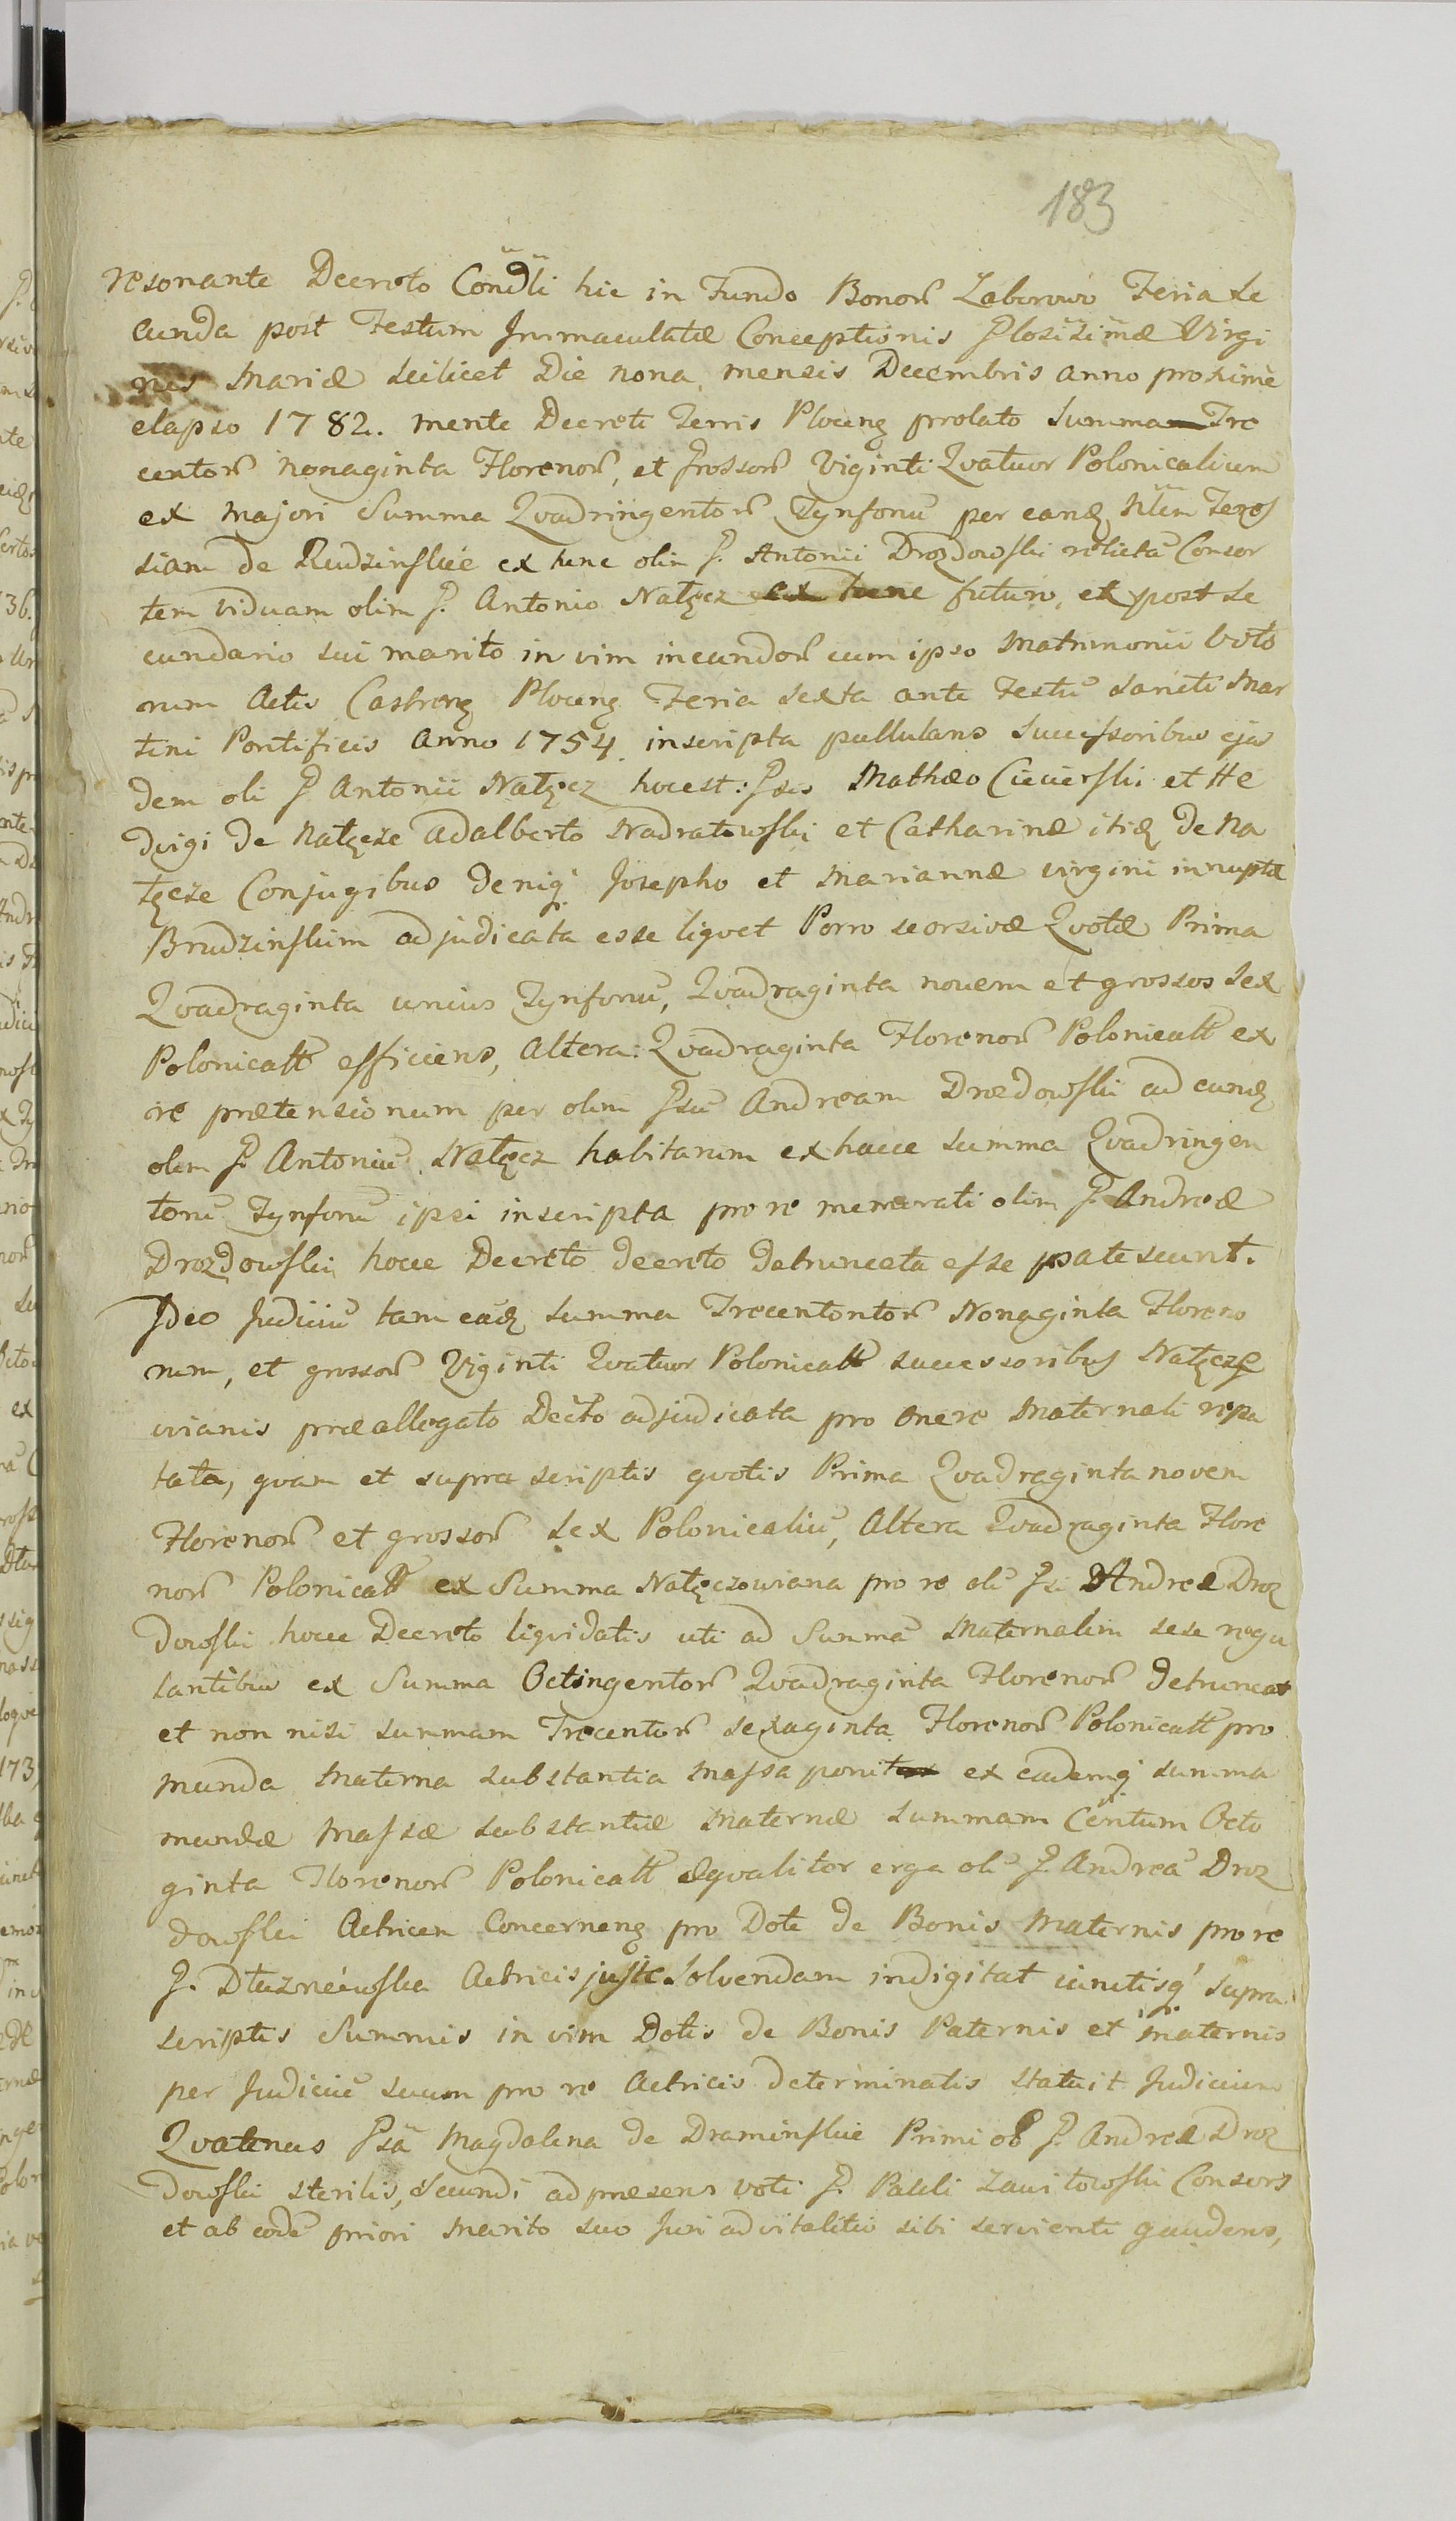 183
resonante Decreto Condli hic in Fundo Bonor Zaborowo Feria Se
cunda post Festum Immaculatæ Conceptionis Glosissimæ Virgi
nis Mariæ scilicet Die nona mensis Decembris anno proxime
elapso 1782. mente Decreti Terris Plocens prolato Summa Tre
centor Nonaginta Florenor, et Grossor Viginti Qvatuor Polonicalium
ex majori Summa Qvadringentor Tynfonu per eand
siam de Rudzinskie ex tunc olim G. Antonii Drozdowski relicta Consor
tem viduam olim G. Antonio Nałęcz ex tunc futuro, et post Se
cundario sui marito in vim ineundor cum ipso Matrimonii Voto
rum Actis Castrens Plocens Feria Sexta ante Festu Sancti Mar
tini Pontificis Anno 1754 inscripta pullulans Successoribus ejus
dem oli G Antonii Nałęcz hocest: Gsis Mathæo Ciecierski et He
dvigi de Nałęcze Adalberto Nadratowski et Catharinæ itid de Na
łęcze Conjugibus deniq Josepho et Mariannæ virgini innuptæ
Brudzinskim adjudicata esse liqvet Porro seorsivæ Qvotæ Prima
Qvadraginta unius Tynfonu, Qvadraginta novem et grossos Sex
Polonicall efficiens, Altera: Qvadraginta Florenor Polonicall ex
re prætensionum per olim Gsu Andream Drozdowski ad eund
olim G. Antoniu Nałęcz habitarum ex hacce Summa Qvadringen
toru Tynfonu ipsi inscripta pro re memorati olim G. Andreæ
Drozdowski hocce Decreto decreto detruncata esse patescunt.
Ideo Judiciu tam ead Summa Trecentontor Nonaginta Floreno
rum, et grossor Viginti Qvatuor Polonicall successoribus Nałęczo
vianis præallegato Decto adjudicata pro onere Maternali repu
tata, qvam et supra scriptis qvotis Prima Qvadraginta novem
Florenor et grossor Sex Polonicaliu, Altera Qvadraginta Flore
nor Polonicall ex Summa Nałęczowiana pro re oli Gsi Andreæ Droz
dowski hocce Decreto liqvidatis uti ad Summa Maternalem sese regu
lantibus ex Summa Octingentor Qvadraginta Florenor detruncat
et non nisi summam Trecentor Sexaginta Florenor Polonicall pro
munda Materna substantia Massa ponit ex eademq summa
mundæ Massæ substantiæ Maternæ summam Centum Octo
ginta Florenor Polonicall æqvaliter erga oli G. Andrea Droz
dowski Actricem Concernens pro Dote de Bonis Maternis pro re
G. Dłuzniewska Actricis juste Solvendam indigitat cunctisq supra
scriptis Summis in vim Dotis de Bonis Paternis et maternis
per Judiciu suum pro re Actricis determinatis statuit Judicium
Qvatenus Gsa Magdalena de Draminskie Primi G. Andreæ Droz
dowski sterilis, Secundi ad præsens voti G. Pauli Zawitowski Consors
et ab eode priori Marito suo Juri advitalitio sibi servienti gaudens,